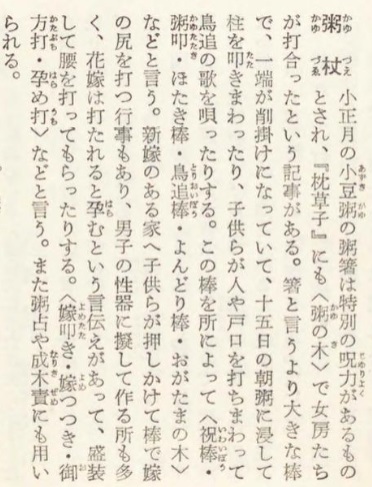 粥杖 小正月の小豆粥の粥箸は特別の呪力があるもの
とされ、『枕草子』にも〈粥の木〉で女房たち
が打合ったという記事がある。箸と言うより大きな棒
で、一端が削掛けになっていて、十五日の朝粥に浸して
柱を叩きまわったり、子供らが人や戸口を打ちまわって
鳥追の歌を唄ったりする。この棒を所によって〈祝棒・
粥叩・ほたき棒・鳥追棒・よんどり棒・おがたまの木〉
などと言う。新嫁のある家へ子供らが押しかけて棒で嫁
の尻を打つ行事もあり、男子の性器に擬して作る所も多
く、花嫁は打たれると孕むという言伝えがあって、盛装
して腰を打ってもらったりする。〈嫁叩き・嫁つつき・御
方打・孕め打〉などと言う。また粥占や成木責にも用い
られる。